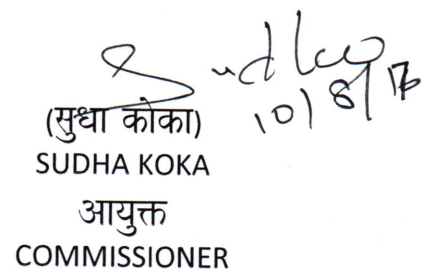 Sudha
10/8/17
(सुधा कोका)
SUDHA KOKA
आयुक्त
COMMISSIONER